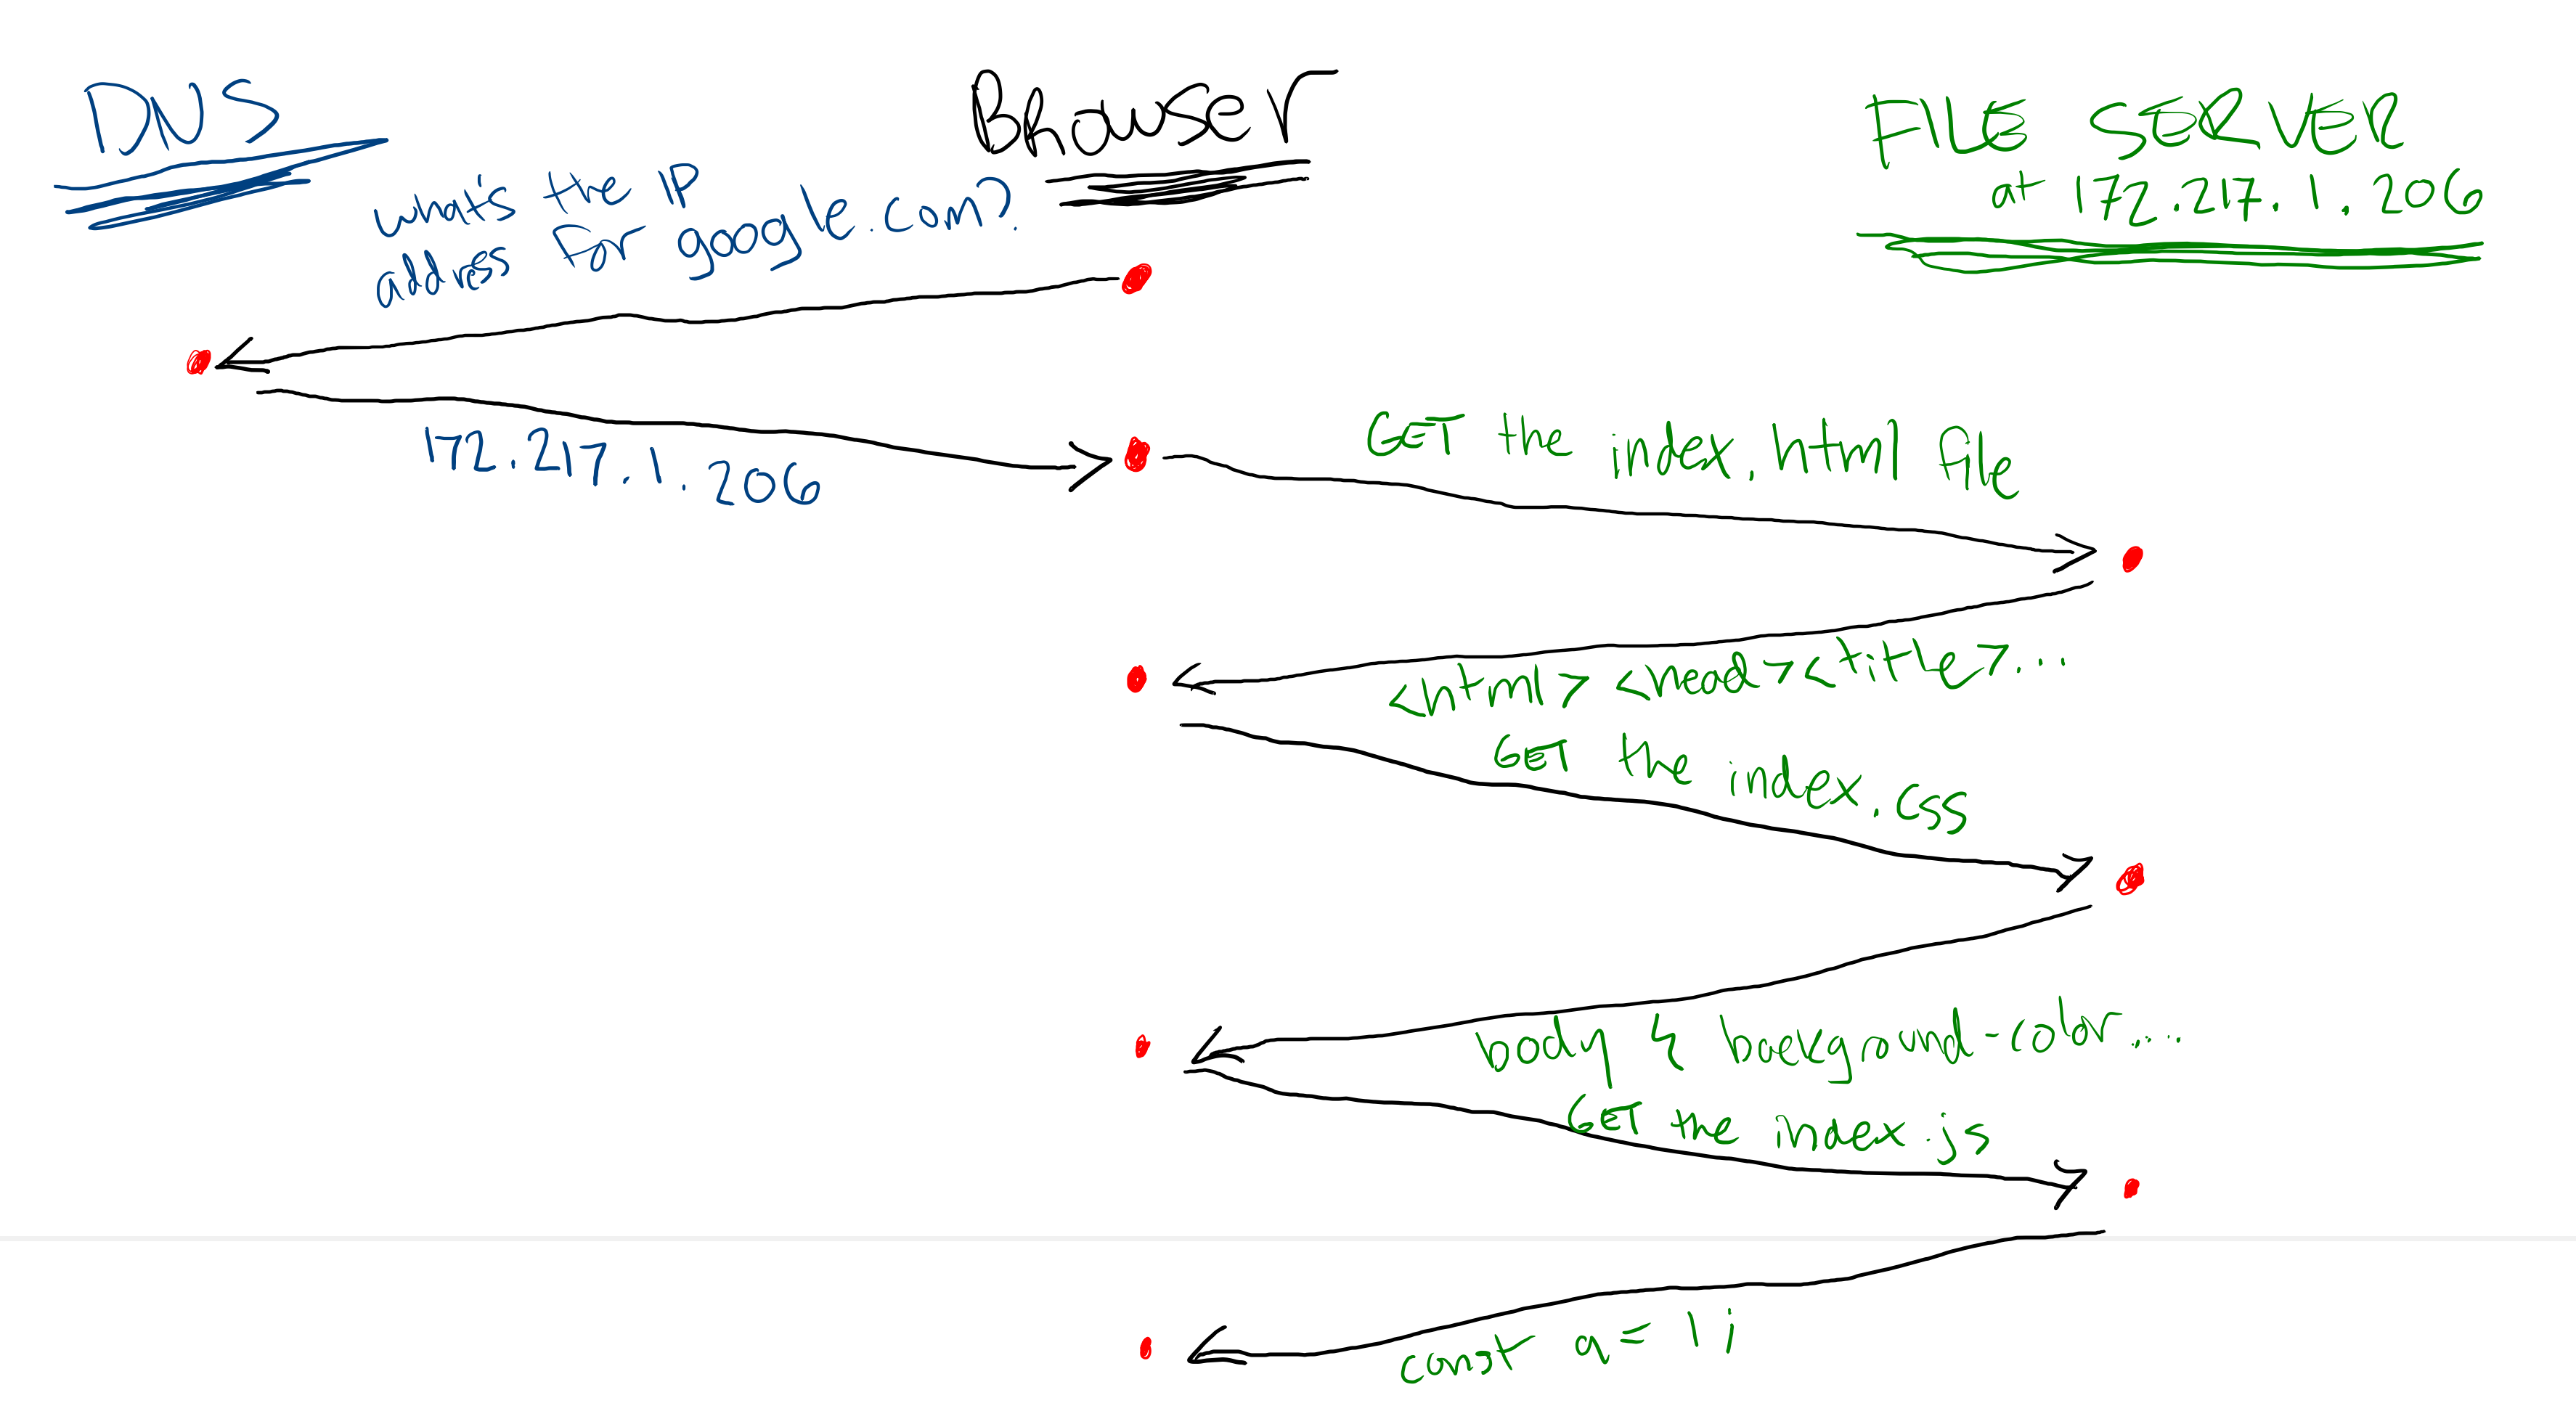 DNS
Browser
FILE SERVER
at 172.217.1.206
what's the IP
address for google.com?
172.217.1.206
GET the index.html file
<html> <head><title>...
GET the index.css
body { background-color....
GET the index.js
const a = 1;